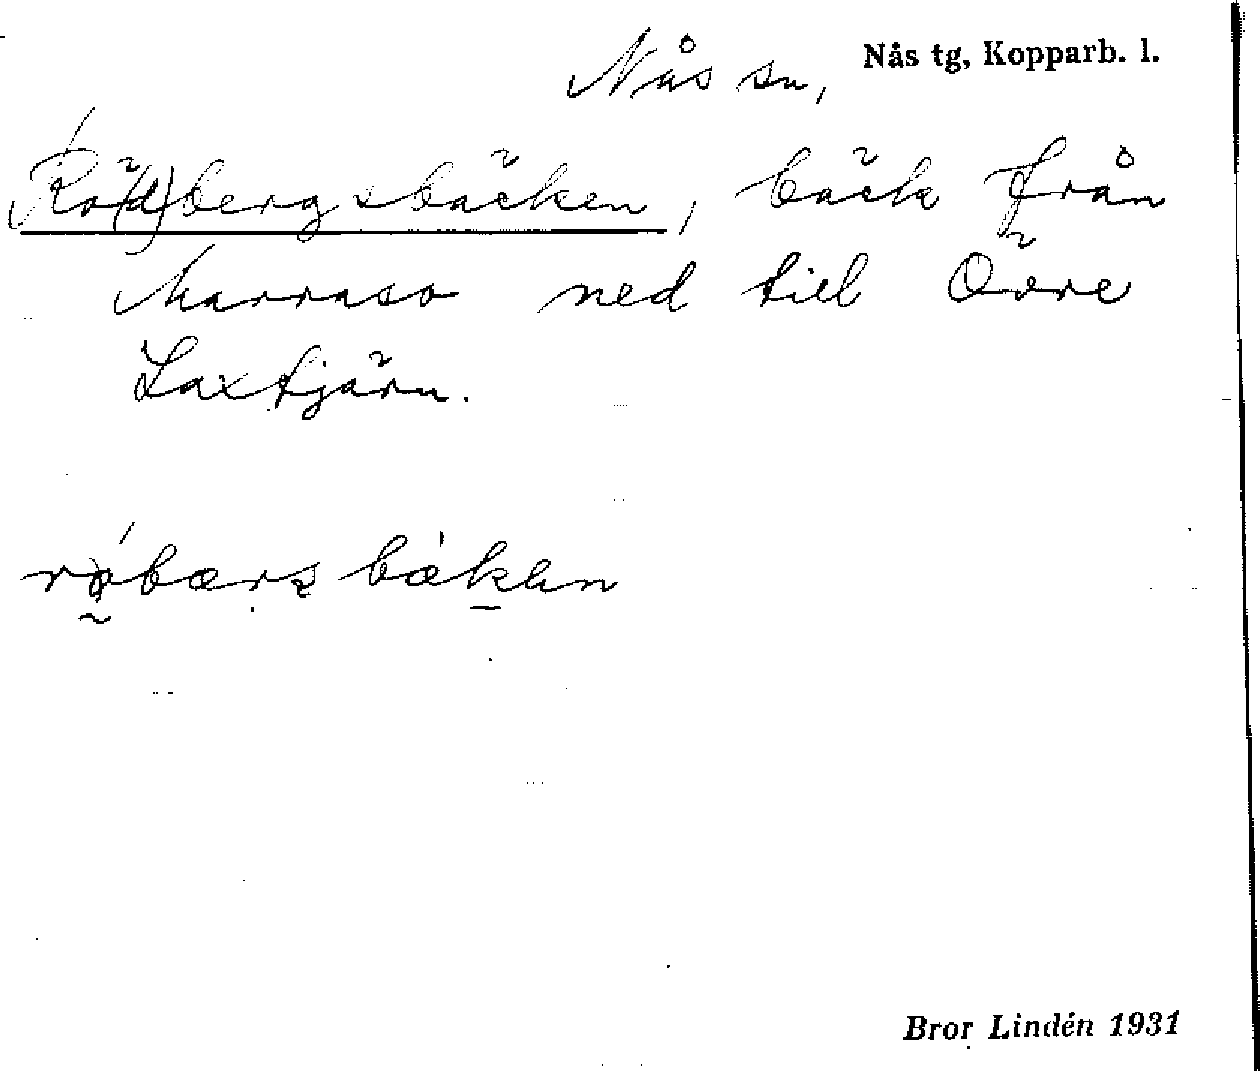 Nås sn, Nås tg, Kopparb. l.
Rö(d)bergsbäcken, bäck från
Marraso ned till Övre
Laxtjärn.
Bror Lindén 1931